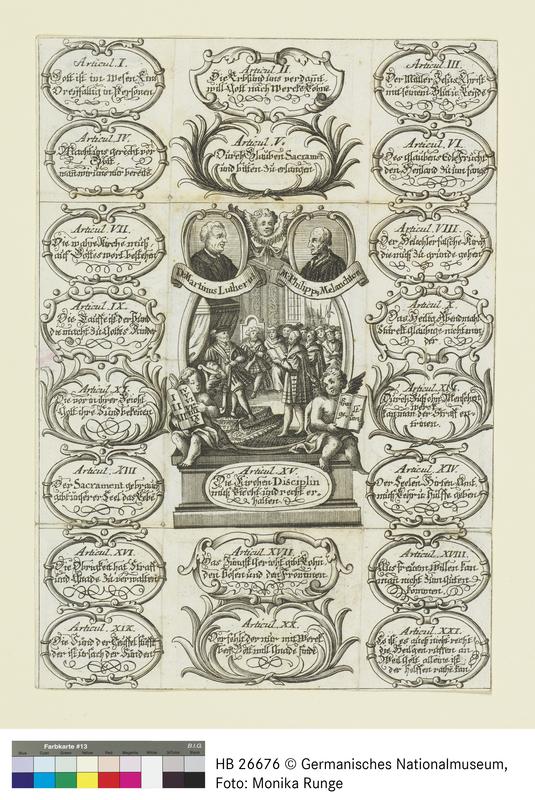 Articul. I.
Gott ist im Wesen Ein
Dreyfaltig in Personen
Articul II.
Die Erbsünd uns verdamt
will Gott nach Wercke Lohne
Articul. III.
Der Mittler Jesus Christ
mit seinem Blut u.
Articul IV.
Macht uns gerecht vor
Gott
Articul V.
Durch Glauben Sacrament
und bitten zu erlangen
Articul. VI
Des Glaubens Edle Frücht
den Heyland
Articul. VII.
Die wahre Kirche muß
auf Gottes wort bestehen
Articul. VIII
Der Heuchler falsche Kirch
die muß zu grunde gehen
D. Martinus Luther
M. Philipp, Melanchton
Articul. IX.
Die Tauffe ist der Bund
die macht zu Gottes Kinder
Articul. X.
Das Heilig Abendmahl
der
Articul. XI.
Die vor ihrer Beicht
Gott ihre Sünd bekennen
Articul. XII.
Durch
werck
kan man der Straff ent-
rinnen.
Articul. XIII
Der Sacrament gebrauch
gibt unserer Seel das Lebe
Articul. XV.
Die Kirchen Disciplin
muß Liecht und recht er-
halten.
Articul. XIV.
Der Seelen Hirten Amt
muß Lehr u: hülffe geben
Articul. XVI.
Die Obrigkeit hat Straff
und Gnade zu verwalten
Articul. XVII
Das Jüngst Gericht gibt Lohn
den bösen und den Frommen
Articul. XVIII.
Aus freien Willen kan
man nicht zum guten
kommen.
Articul. XIX.
Die Sünd der Teuffel stifft
der ist ursach der Sünden
Articul. XX.
Der fehlt der nur mit Werck
bey Gott will Gnade finde
Articul. XXI.
Es ist es auch nicht recht
die Heilgen ruffen an
Weil Gott alleine ist
der helffen rathe kan
Farbkarte #13
B.I.G.
Blue Cyan Green Yellow Red Magenta White 3/Color Black
HB 26676 © Germanisches Nationalmuseum,
Foto: Monika Runge